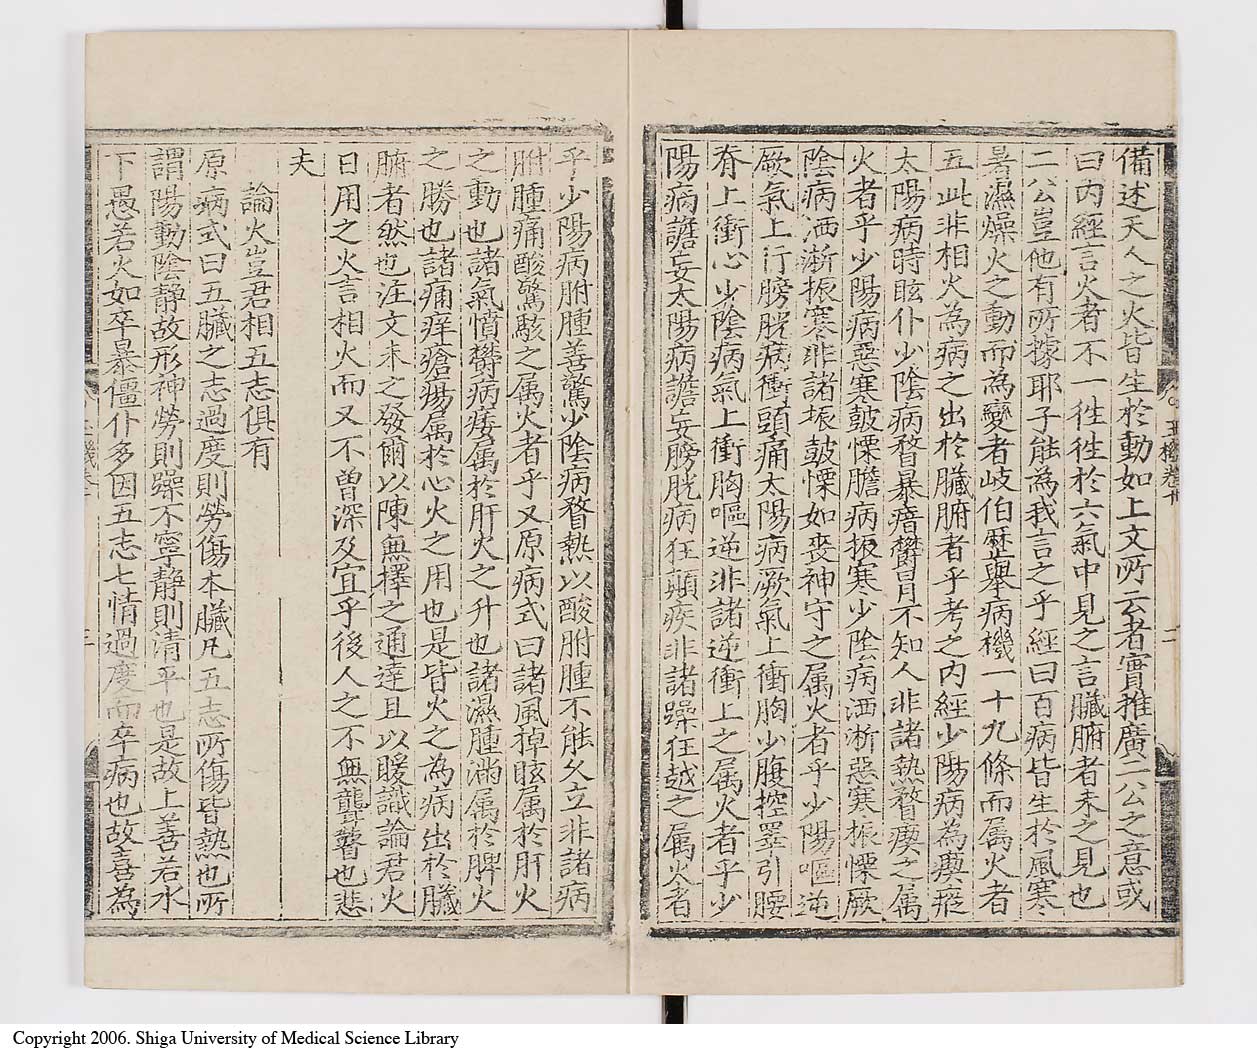 備述天人之火皆生於動如上文所云者實推廣二公之意或
曰内經言火者不一徃徃於六氣中見之言臓腑者未之見也
二公豈他有所據耶子能為我言之乎經曰百病皆生於風寒
暑濕燥火之動而為變者岐伯歷舉病機一十九條而属火者
五此非相火為病之出於臓腑者乎考之内經少陽病為瘈瘲
太陽病時眩仆少陰病瞀暴瘖欝冒不知人非諸熱瞀瘈之属
火者乎少陽病惡寒皷慄膽病振寒少陰病洒淅惡寒振慄厥
陰病洒淅振寒非諸振皷慄如喪神守之属火者乎少陽嘔逆
厥氣上行膀胱病衝頭痛太陽病厥氣上衝胸少腹控睪引腰
脊上衝心少陰病氣上衝胸嘔逆非諸逆衝上之属火者乎少
陽病譫妄太陽病譫妄膀胱病狂顛疾非諸躁狂越之属火者
乎少陽病胕腫善驚少陰病瞀熱以酸胕腫不能久立非諸病
胕腫痛酸驚駭之属火者乎又原病式曰諸風掉眩属於肝火
之動也諸氣憤欝病痿属於肝火之升也諸濕腫滿属於脾火
之勝也諸痛痒瘡瘍属於心火之用也是皆火之為病出於臓
腑者然也注文未之發爾以陳無擇之通達且以暖識論君火
日用之火言相火而又不曾深及宜乎後人之不無聾瞽也悲
夫
論火豈君相五志俱有
原病式曰五臓之志過度則勞傷本臓凡五志所傷皆熱也所
謂陽動陰靜故形神勞則躁不寧靜則清平也是故上善若水
下愚若火如卒暴僵仆多因五志七情過度而卒病也故喜為
二
Copyright 2006. Shiga University of Medical Science Library